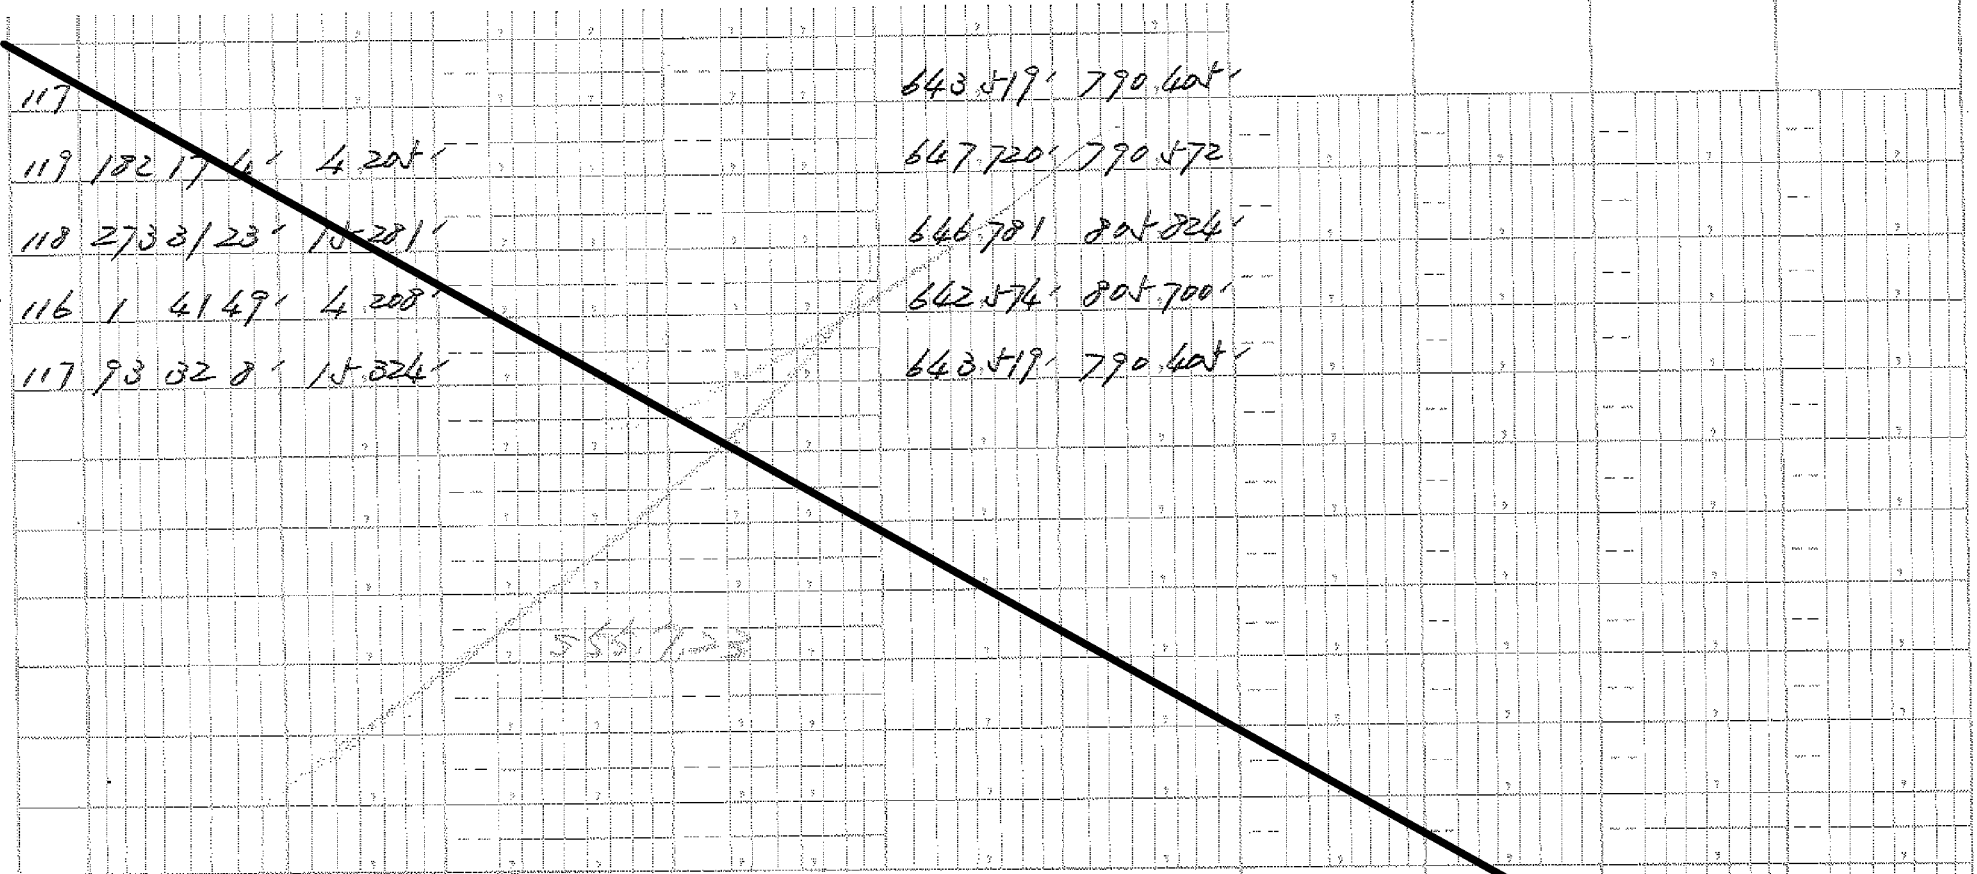 117 643 519 790.405
119 182 17 4 4.205 647 720 790 572
118 273 31 23 15 281 646.781 805 824
116 1 41 49 4.208 642 574 805.700
117 93 32 8 15.324 643 519 790.405